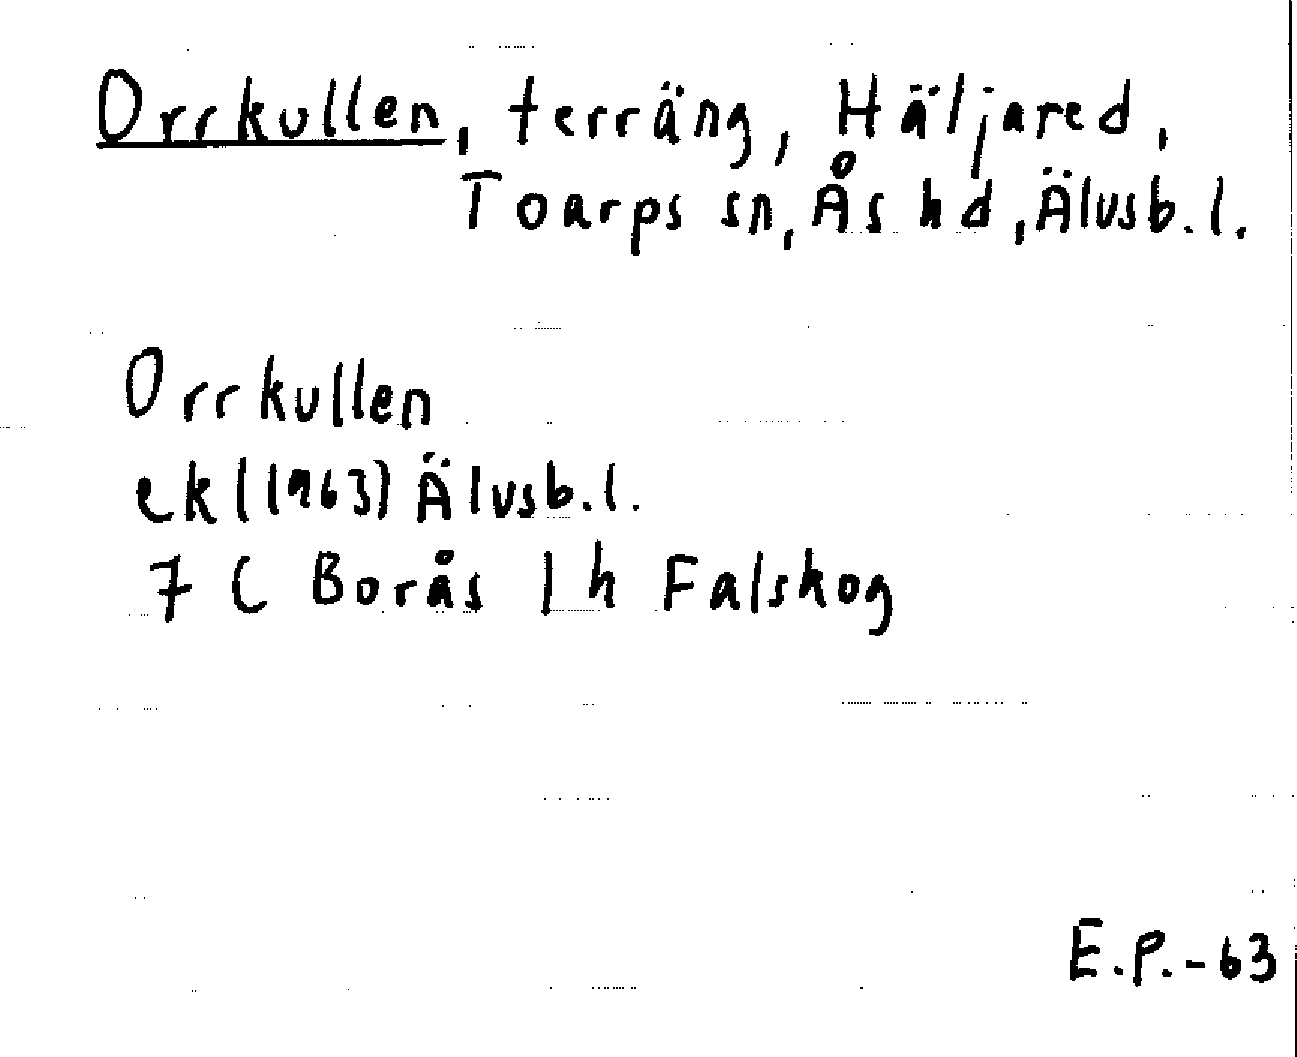 Orrkullen, terräng, Häljared,
Toarps sn, Ås hd, Älvsb. l.
Orrkullen
ek (1963) Älvsb. l.
7 C Borås 1 h Falskog
E.P.-63